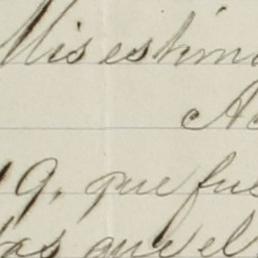 Mis estim
A
19, que fue
as que el